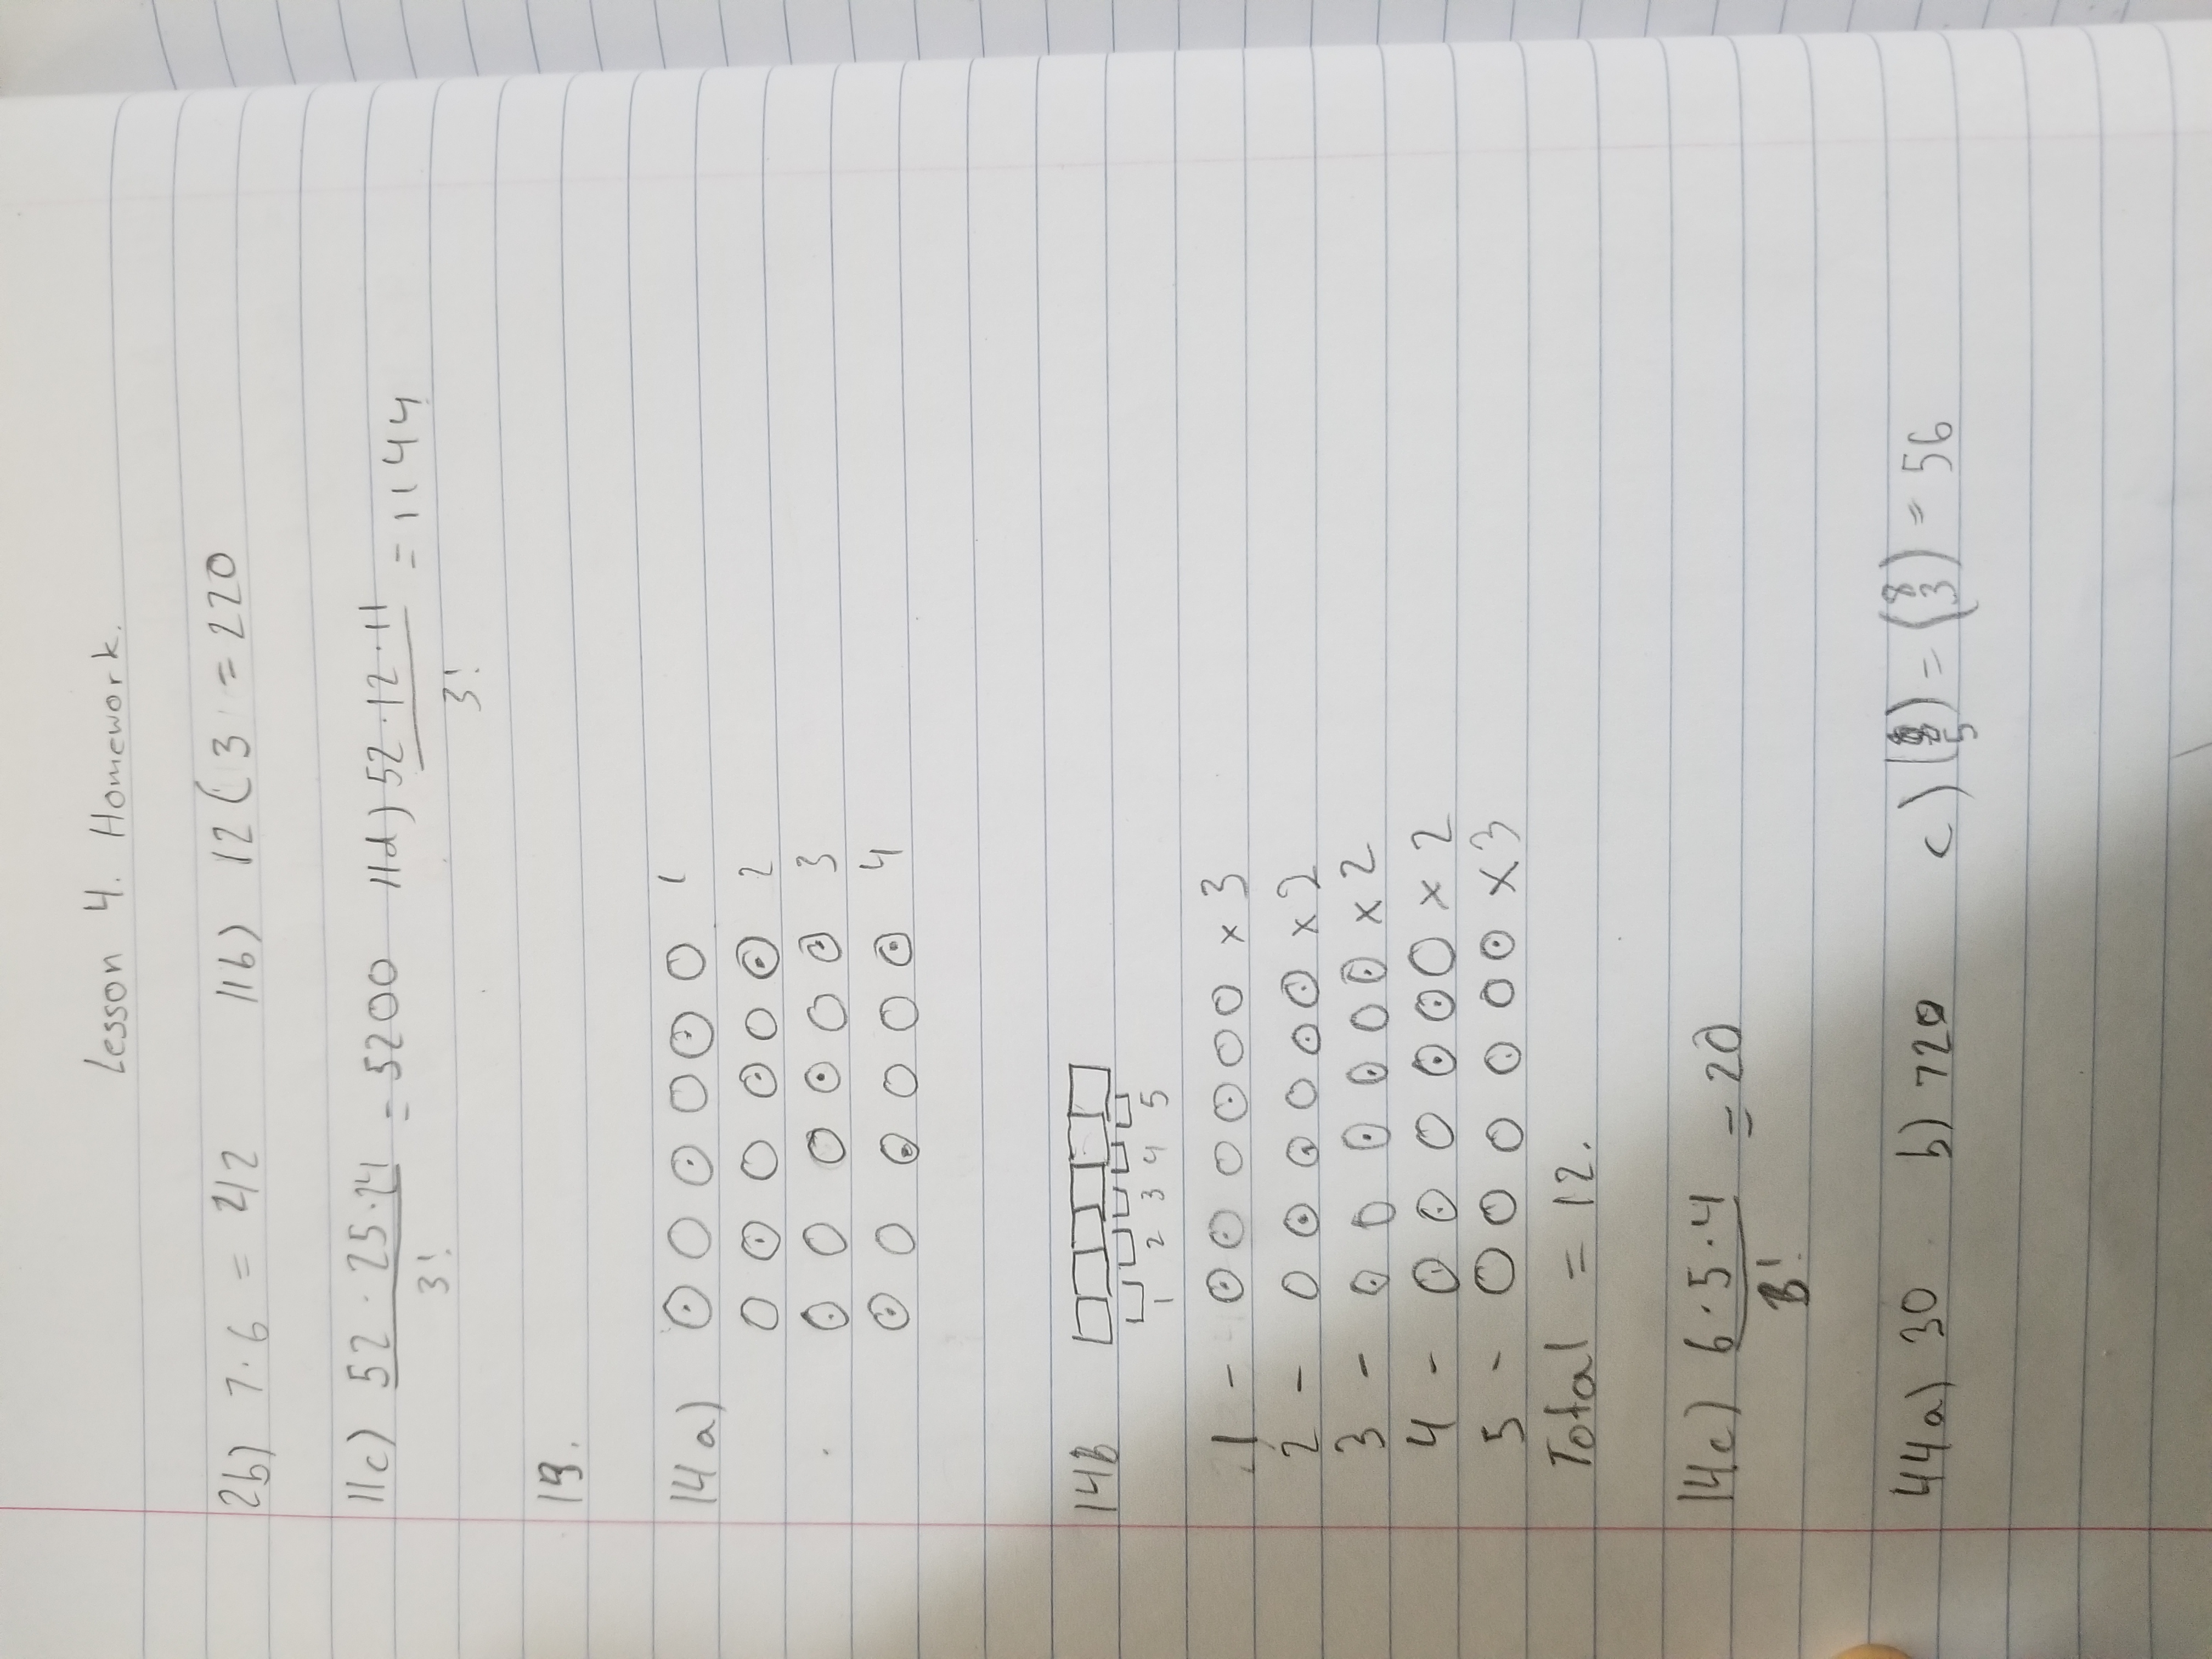 Lesson 4. Homework.
2b) 7·6 = 42 11b) 12 C 3 = 220
11c) 52·25·24 / 3! = 5200 11d) 52·12·11 / 3! = 1144
14a) 1
2
3
4
14b
1 2 3 4 5
1 - x 3
2 - x 2
3 - x 2
4 - x 2
5 - x 3
Total = 12.
14c) 6·5·4 / 3! = 20
44a) 30 b) 720 c) (8 5) = (8 3) = 56